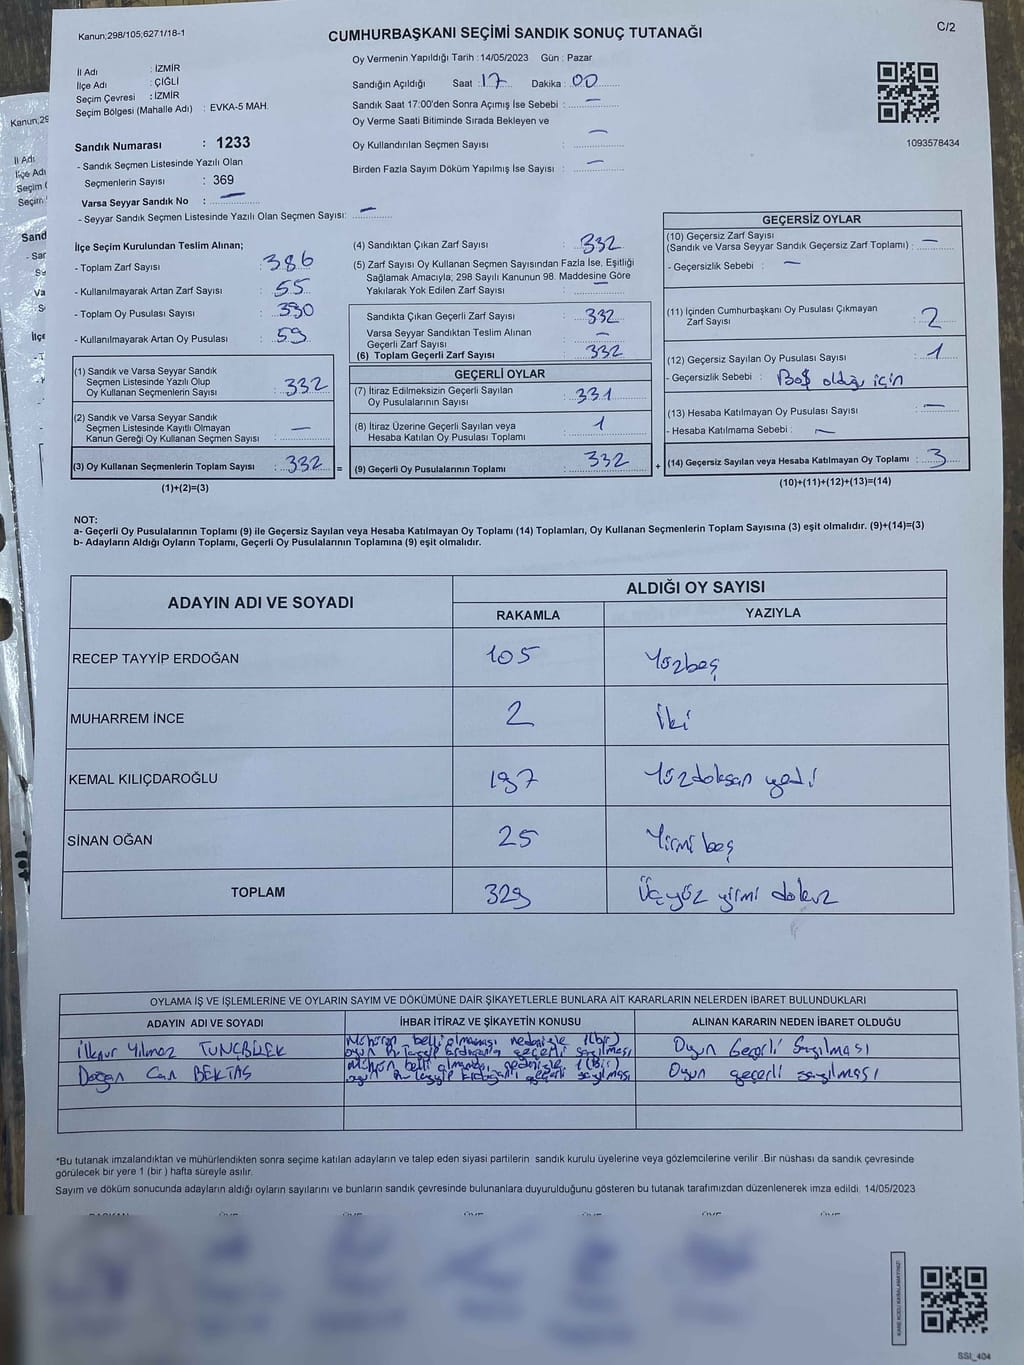 Kanun;298/105;6271/18-1
CUMHURBAŞKANI SEÇİMİ SANDIK SONUÇ TUTANAĞI
C/2
İl Adı : İZMİR
İlçe Adı : ÇİĞLİ
Seçim Çevresi : İZMİR
Seçim Bölgesi (Mahalle Adı) : EVKA-5 MAH.
Sandık Numarası : 1233
- Sandık Seçmen Listesinde Yazılı Olan
Seçmenlerin Sayısı : 369
Varsa Seyyar Sandık No : —
- Seyyar Sandık Seçmen Listesinde Yazılı Olan Seçmen Sayısı: —
Oy Vermenin Yapıldığı Tarih : 14/05/2023 Gün : Pazar
Sandığın Açıldığı Saat : 17 Dakika : 00
Sandık Saat 17:00'den Sonra Açımış İse Sebebi : —
Oy Verme Saati Bitiminde Sırada Bekleyen ve
Oy Kullandırılan Seçmen Sayısı : —
Birden Fazla Sayım Döküm Yapılmış İse Sayısı : —
1093578434
İlçe Seçim Kurulundan Teslim Alınan;
- Toplam Zarf Sayısı : 386
- Kullanılmayarak Artan Zarf Sayısı : 55
- Toplam Oy Pusulası Sayısı :
- Kullanılmayarak Artan Oy Pusulası : 59
(1) Sandık ve Varsa Seyyar Sandık
Seçmen Listesinde Yazılı Olup
Oy Kullanan Seçmenlerin Sayısı : 332
(2) Sandık ve Varsa Seyyar Sandık
Seçmen Listesinde Kayıtlı Olmayan
Kanun Gereği Oy Kullanan Seçmen Sayısı : —
(3) Oy Kullanan Seçmenlerin Toplam Sayısı : 332 =
(1)+(2)=(3)
(4) Sandıktan Çıkan Zarf Sayısı : 332
(5) Zarf Sayısı Oy Kullanan Seçmen Sayısından Fazla İse, Eşitliği
Sağlamak Amacıyla; 298 Sayılı Kanunun 98. Maddesine Göre
Yakılarak Yok Edilen Zarf Sayısı : —
Sandıkta Çıkan Geçerli Zarf Sayısı : 332
Varsa Seyyar Sandıktan Teslim Alınan
Geçerli Zarf Sayısı : —
(6) Toplam Geçerli Zarf Sayısı : 332
GEÇERLİ OYLAR
(7) İtiraz Edilmeksizin Geçerli Sayılan
Oy Pusulalarının Sayısı : 331
(8) İtiraz Üzerine Geçerli Sayılan veya
Hesaba Katılan Oy Pusulası Toplamı : 1
(9) Geçerli Oy Pusulalarının Toplamı : 332 +
GEÇERSİZ OYLAR
(10) Geçersiz Zarf Sayısı
(Sandık ve Varsa Seyyar Sandık Geçersiz Zarf Toplamı) : —
- Geçersizlik Sebebi : —
(11) İçinden Cumhurbaşkanı Oy Pusulası Çıkmayan
Zarf Sayısı : 2
(12) Geçersiz Sayılan Oy Pusulası Sayısı : 1
- Geçersizlik Sebebi : Boş olduğu için
(13) Hesaba Katılmayan Oy Pusulası Sayısı : —
- Hesaba Katılmama Sebebi : —
(14) Geçersiz Sayılan veya Hesaba Katılmayan Oy Toplamı : 3
(10)+(11)+(12)+(13)=(14)
NOT:
a- Geçerli Oy Pusulalarının Toplamı (9) ile Geçersiz Sayılan veya Hesaba Katılmayan Oy Toplamı (14) Toplamları, Oy Kullanan Seçmenlerin Toplam Sayısına (3) eşit olmalıdır. (9)+(14)=(3)
b- Adayların Aldığı Oyların Toplamı, Geçerli Oy Pusulalarının Toplamına (9) eşit olmalıdır.
ADAYIN ADI VE SOYADI ALDIĞI OY SAYISI
RAKAMLA YAZIYLA
RECEP TAYYİP ERDOĞAN 105 Yüzbeş
MUHARREM İNCE 2 İki
KEMAL KILIÇDAROĞLU 197 Yüzdoksan yedi
SİNAN OĞAN 25 Yirmi beş
TOPLAM 329 Üçyüz yirmi dokuz
OYLAMA İŞ VE İŞLEMLERİNE VE OYLARIN SAYIM VE DÖKÜMÜNE DAİR ŞİKAYETLERLE BUNLARA AİT KARARLARIN NELERDEN İBARET BULUNDUKLARI
ADAYIN ADI VE SOYADI İHBAR İTİRAZ VE ŞİKAYETİN KONUSU ALINAN KARARIN NEDEN İBARET OLDUĞU
İlknur Yılmaz TUNCBİLEK Mührün belli olmaması nedeniyle 1(bir)
oyun R. Tayyip Erdoğana geçerli sayılması Oyun Geçerli Sayılması
Doğan Can BEKTAŞ Mührün belli olmaması nedeniyle 1(Bir)
oyun R. Tayyip Erdoğana geçerli sayılması Oyun geçerli sayılması
*Bu tutanak imzalandıktan ve mühürlendikten sonra seçime katılan adayların ve talep eden siyasi partilerin sandık kurulu üyelerine veya gözlemcilerine verilir .Bir nüshası da sandık çevresinde
görülecek bir yere 1 (bir ) hafta süreyle asılır.
Sayım ve döküm sonucunda adayların aldığı oyların sayılarını ve bunların sandık çevresinde bulunanlara duyurulduğunu gösteren bu tutanak tarafımızdan düzenlenerek imza edildi. 14/05/2023
SSI_404